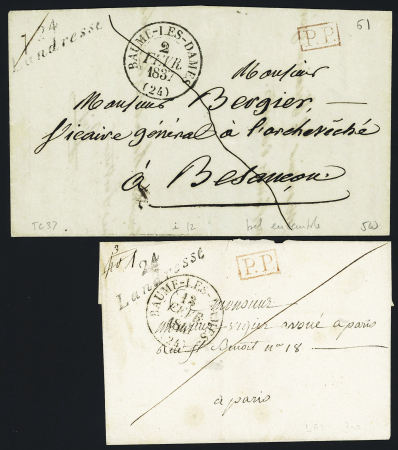 24
Landresse
BAUME-LES-DAMES
2
FEVR
1837
(24)
P.P.
61
Monsieur
Monsieur Bergier,
Vicaire général à l'archevêché
à Besançon.
TC37
i 12
bel ensemble
24
Landresse
BAUME-LES-DAMES
12
FEVR
(24)
P.P.
Monsieur
avoué a paris
Rue St Benoit no 18
a paris